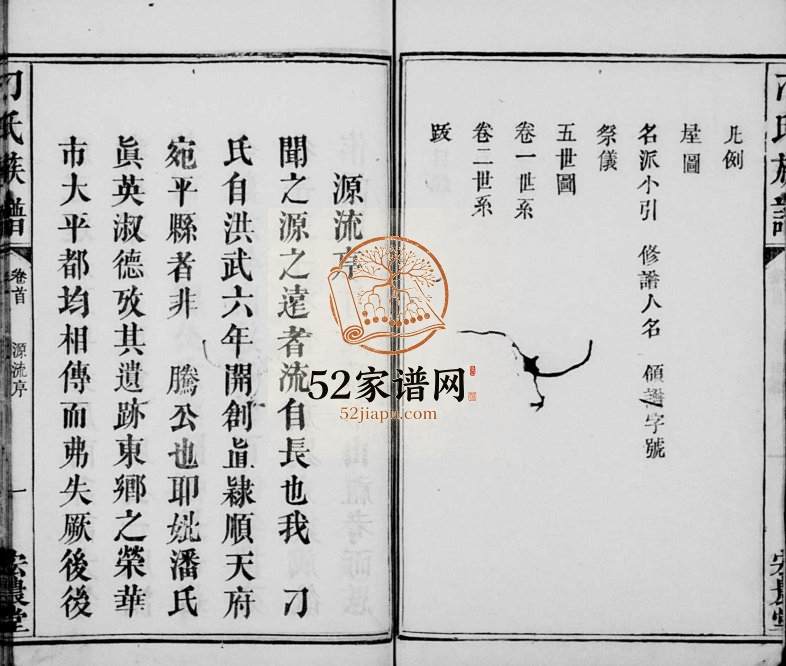 凡例
墓圖
名派小引 修譜人名 領譜字號
祭儀
五世圖
卷一世系
卷二世系
跋
源流序
聞之源之遠者流自長也我 刁
氏自洪武六年開創直隸順天府
宛平縣者非 騰公也耶妣潘氏
眞英淑德攷其遺跡東鄉之榮華
市大平都均相傳而弗失厥後後
刁氏族譜
卷首
源流序
一
宏農堂
52家谱网
52jiapu.com